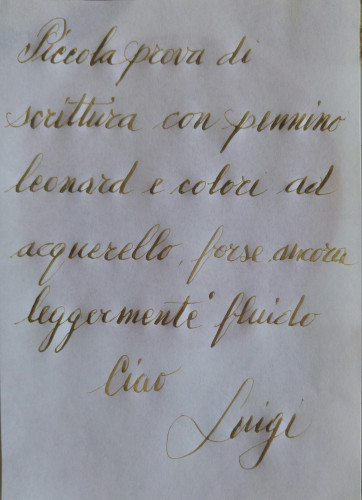 Piccola prova di
scrittura con pennino
leonard e colori ad
acquerello, forse ancora
leggermente fluido
Ciao
Luigi